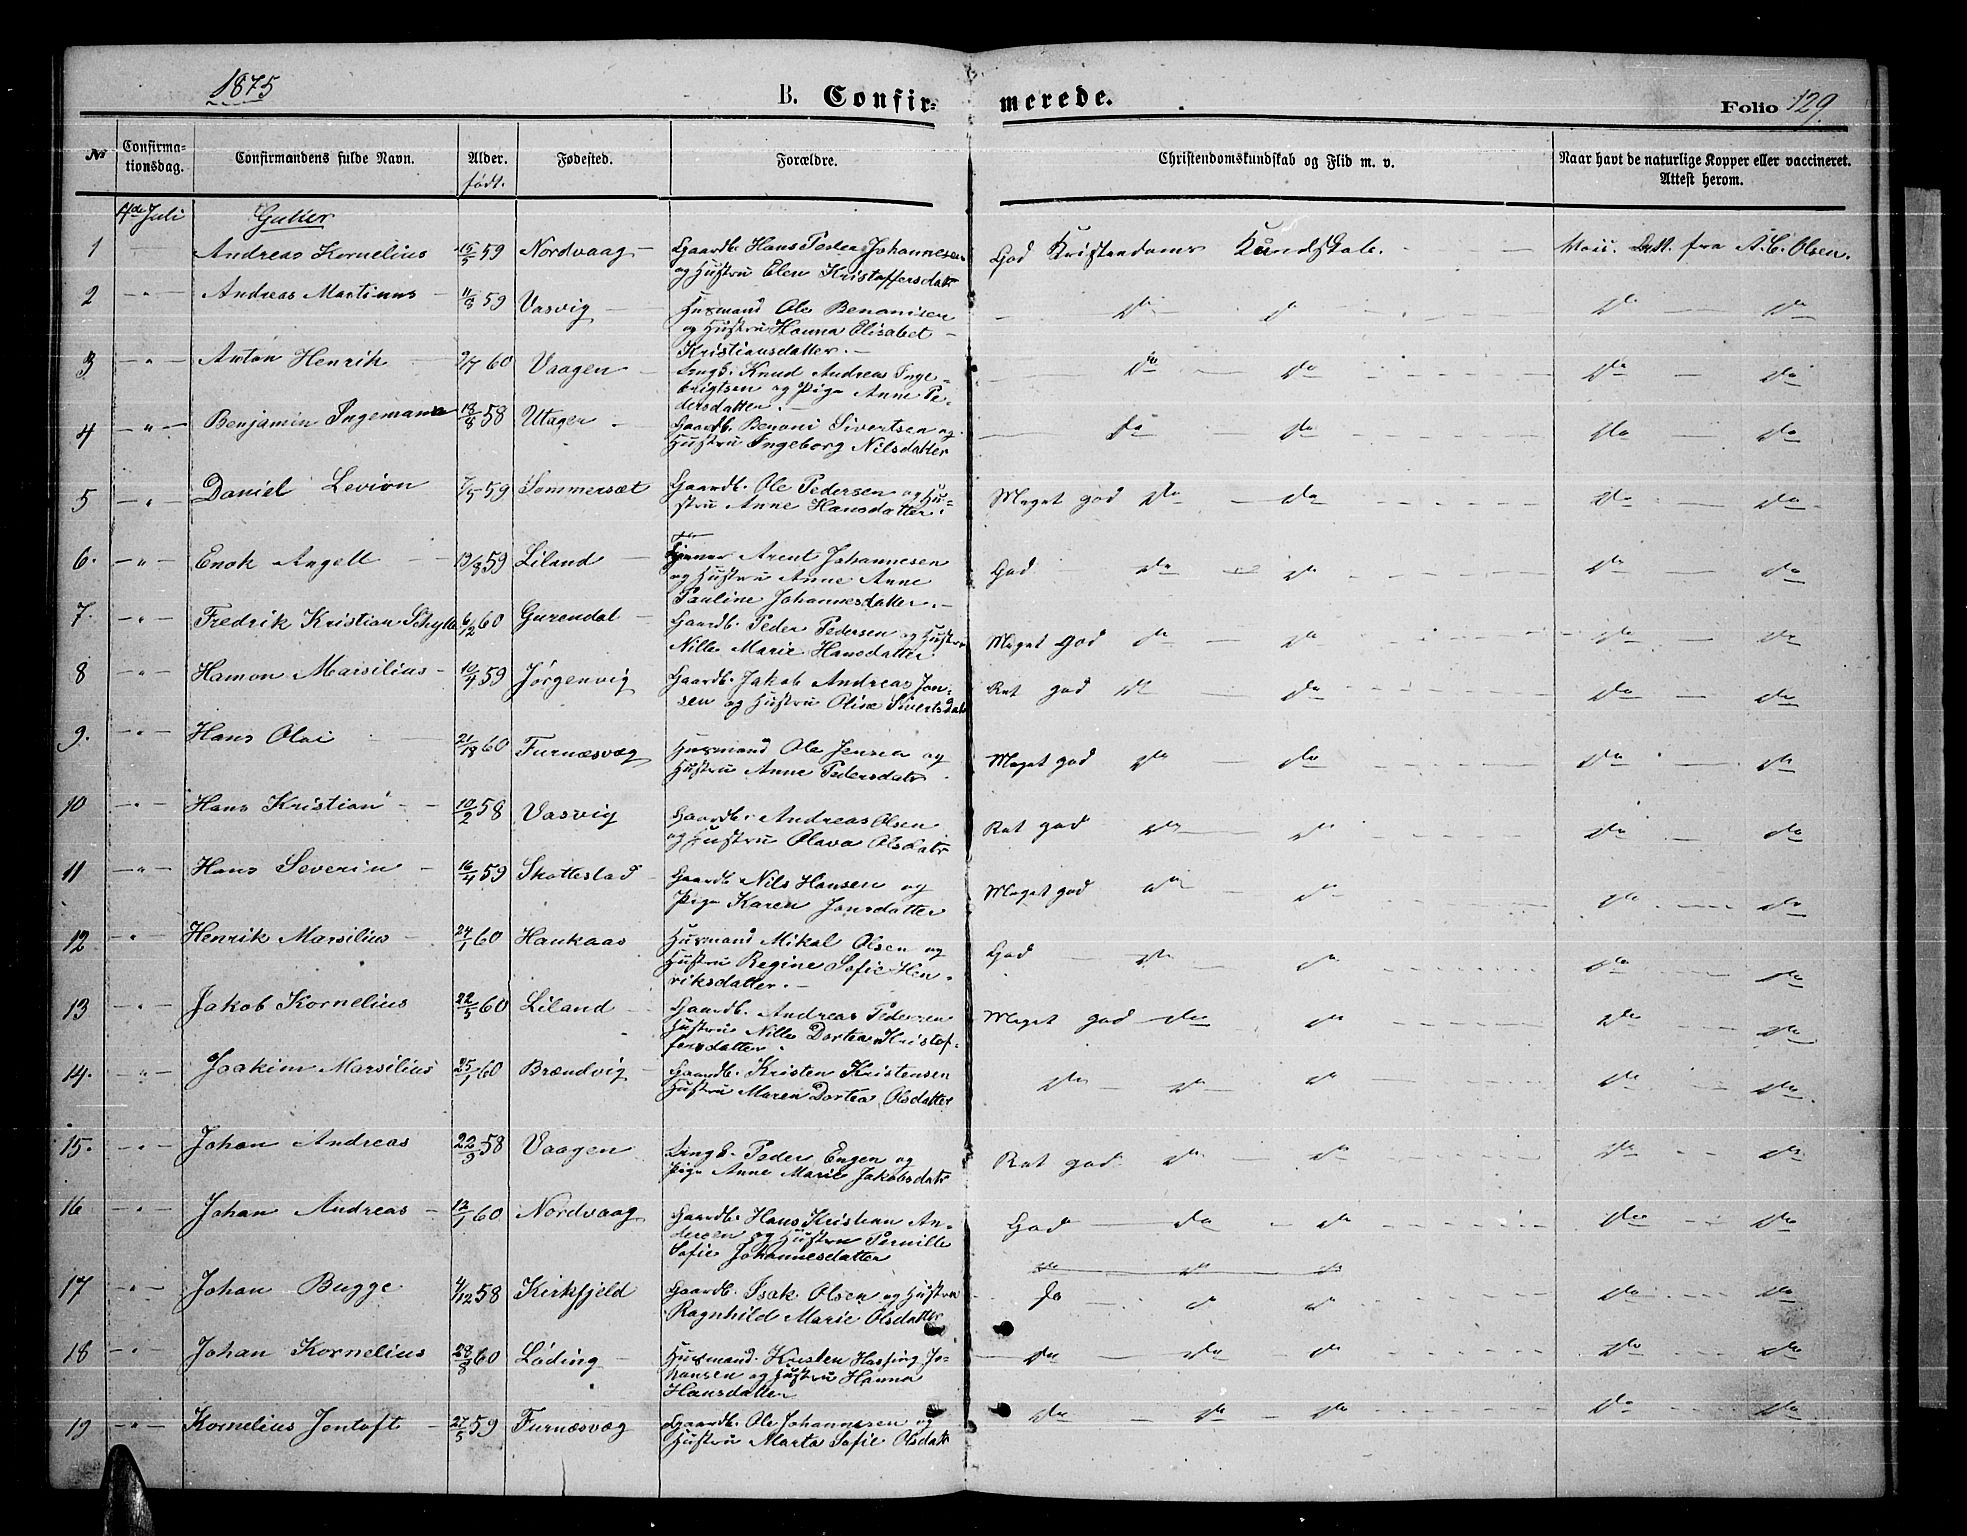 1875
B. Confir-merede.
Folio 129
No Confirmationsdag. Confirmandens fulde Navn. Alder. født. Fødested. Forældre. Christendomskundskab og Flid m. v. Naar havt de naturlige Kopper eller vaccineret. Attest herom.
4de Juli Gutter
1 Andreas Kornelius 15/5 59 Nordvaag Gaardb. Hans Peder Johannesen
og Hustru Elen Kristoffersdatr God Kristendoms Kundskab. Att. fra A. C. Olsen.
2 " Andreas Martinus 11/8 59 Vasvig Husmand Ole Benonisen
og Hustru Hanna Elisabet
Kristiansdatter. do do do do
3 " Anton Henrik 2/7 60 Vaagen Ungk. Knud Andreas Inge-
brigtsen og Pige Anne Pe-
dersdatter. do do do do
4 " Benjamin Ingemann 18/8 58 Utager Gaardb. Benoni Sivertsen og
Hustru Ingeborg Nilsdatter do do do do
5 " Daniel Levion 7/5 59 Sommersæt Gaardb. Ole Pedersen og Hu-
stru Anne Hansdatter. Meget god do do do do
6. " Enok Angell 13/8 59 Liland Arent Johannesen
og Hustru Anne Anne
Pauline Johannesdatter. God do do do do
7. " Fredrik Kristian Schytte 6/12 60 Gurendal Gaardb. Peder Pedersen og Hustru
Nille Marie Hansdatter Meget god do do do do
8 " Hamon Marsilius 10/4 59 Jørgenvig Gaardb. Jakob Andreas Jon-
sen og Hustru Olise Sivertsdatr Ret god do do do do
9. " Hans Olai 60 Furnæsvæg Husmand Ole Jensen og
Hustru Anne Pedersdatr Meget god do do do do
10 " Hans Kristian 10/2 58 Vasvig Gaardb. Andreas Olsen
og Hustru Olava Olsdatr Ret god do do do do
11 " Hans Severin 16/4 59 Skottestad Gaardb. Nils Hansen og
Pige Karen Jonsdatter Meget god do do do do
12 " Henrik Marsilius 24/1 60 Haukaas Husmand Mikal Olsen og
Hustru Regine Sofie Hen-
riksdatter. God do do do do
13 " Jakob Kornelius 22/5 60 Liland Gaardb. Andreas Pedersen
Hustru Nille Dortea Kristof-
fersdatter. Meget god do do do do
14. " Joakim Marsilius 25/1 60 Brændvig Gaardb. Kristen Kristensen
Hustru Maren Dortea Olsdatter do do do do do
15. " Johan Andreas 22/9 58 Vaagen Ungk. Peder Engen og
Pige Anne Marie Jakobsdatr Ret god do do do do
16 " Johan Andreas 12/1 60 Nordvaag Gaardb. Hans Kristian An-
dersen og Hustru Pernille
Sofie Johannesdatter God do do do do
do do do
17 " Johan Bugge 4/12 58 Kirkfjeld Gaardb. Isak Olsen og Hustru
Ragnhild Marie Olsdatter do do do do do
18 " Johan Kornelius 28/8 60 Løding Husmand Kristen Hasfing Jo-
hansen og Hustru Hanna
Hansdatter do do do do do
19 " Kornelius Jentoft 27/5 59 Furnæsvæg Gaardb. Ole Johannesen og
Hustru Marta Sofie Olsdatr do do do do do